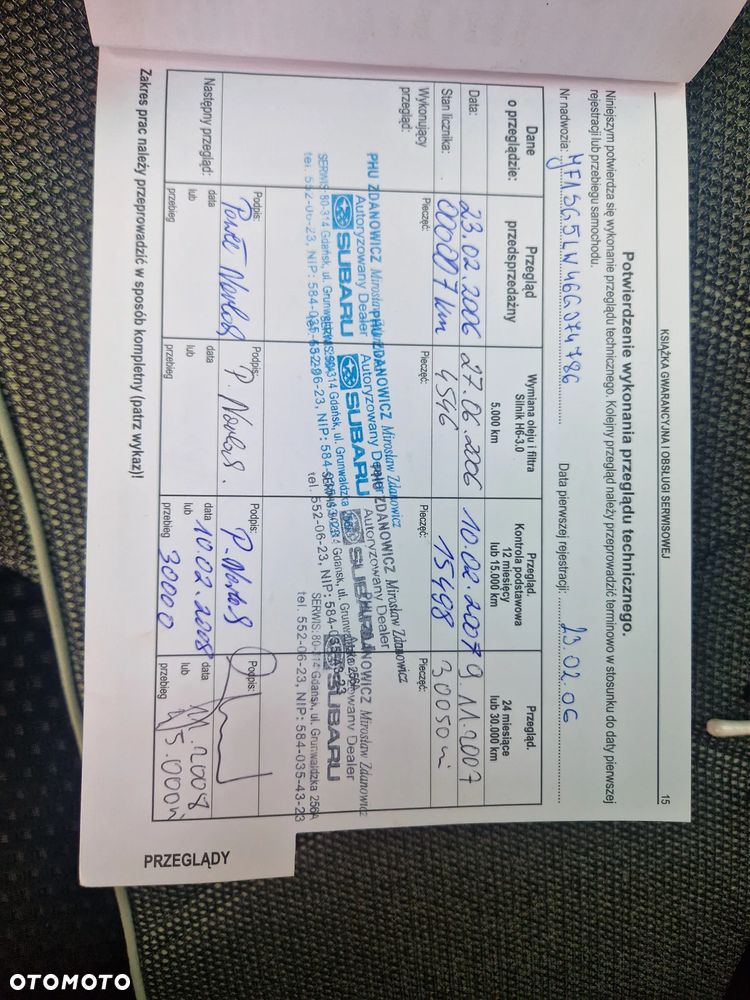 KSIĄŻKA GWARANCYJNA I OBSŁUGI SERWISOWEJ
15
Potwierdzenie wykonania przeglądu technicznego.
Niniejszym potwierdza się wykonanie przeglądu technicznego. Kolejny przegląd należy przeprowadzić terminowo w stosunku do daty pierwszej
rejestracji lub przebiegu samochodu.
Nr nadwozia: Data pierwszej rejestracji: 23.02.06
Dane
o przeglądzie:
Przegląd
przedsprzedażny
Wymiana oleju i filtra
Silnik H6-3.0
5.000 km
Przegląd.
Kontrola podstawowa
12 miesięcy
lub 15.000 km
Przegląd.
24 miesiące
lub 30.000 km
Data: 23.02.2006 27.06.2006 10.02.2007 9.11.2007
Stan licznika: 000007 km 4546 15498 30050
Wykonujący
przegląd:
Pieczęć: Pieczęć: Pieczęć: Pieczęć:
PHU ZDANOWICZ Mirosław
Autoryzowany Dealer
SUBARU
SERWIS: 80-314 Gdańsk, ul. Grunwaldzka
tel. 552-06-23, NIP: 584-035-43-23
PHU ZDANOWICZ Mirosław Zdanowicz
Autoryzowany Dealer
SUBARU
314 Gdańsk, ul. Grunwaldzka
552-06-23, NIP: 584-
ZDANOWICZ Mirosław Zdanowicz
Autoryzowany Dealer
SUBARU
Gdańsk, ul. Grunwaldzka 256A
tel. 552-06-23, NIP: 584-035-43-23
ZDANOWICZ Mirosław Zdanowicz
Dealer
SUBARU
SERWIS: 80-314 Gdańsk, ul. Grunwaldzka 256A
tel. 552-06-23, NIP: 584-035-43-23
Podpis: Podpis: Podpis: Podpis:
Paweł P. P.
Następny przegląd:
data data data 10.02.2008 data 11.2008
lub lub lub lub
przebieg przebieg przebieg 30000 przebieg 45.000
Zakres prac należy przeprowadzić w sposób kompletny (patrz wykaz)!
PRZEGLĄDY
OTOMOTO